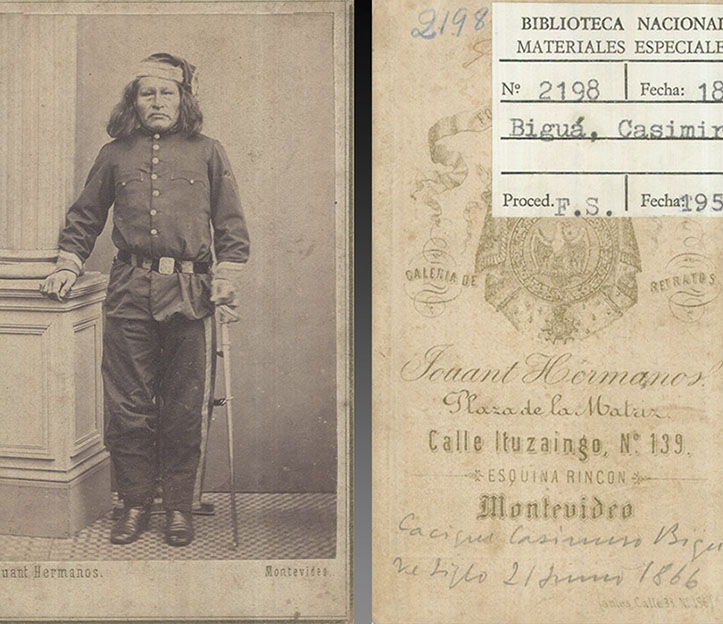 uant Hermanos. Montevideo
2198
BIBLIOTECA NACIONAL
MATERIALES ESPECIALE
Nº 2198 Fecha: 18
Biguá, Casimir
Proced. F.S. Fecha: 195
GALERIA DE RETRATOS
Jouant Hermanos.
Plaza de la Matriz.
Calle Ituzaingo, Nº 139.
ESQUINA RINCON
Montevideo
Cacique Casimiro Bigu
21 Junio 1866